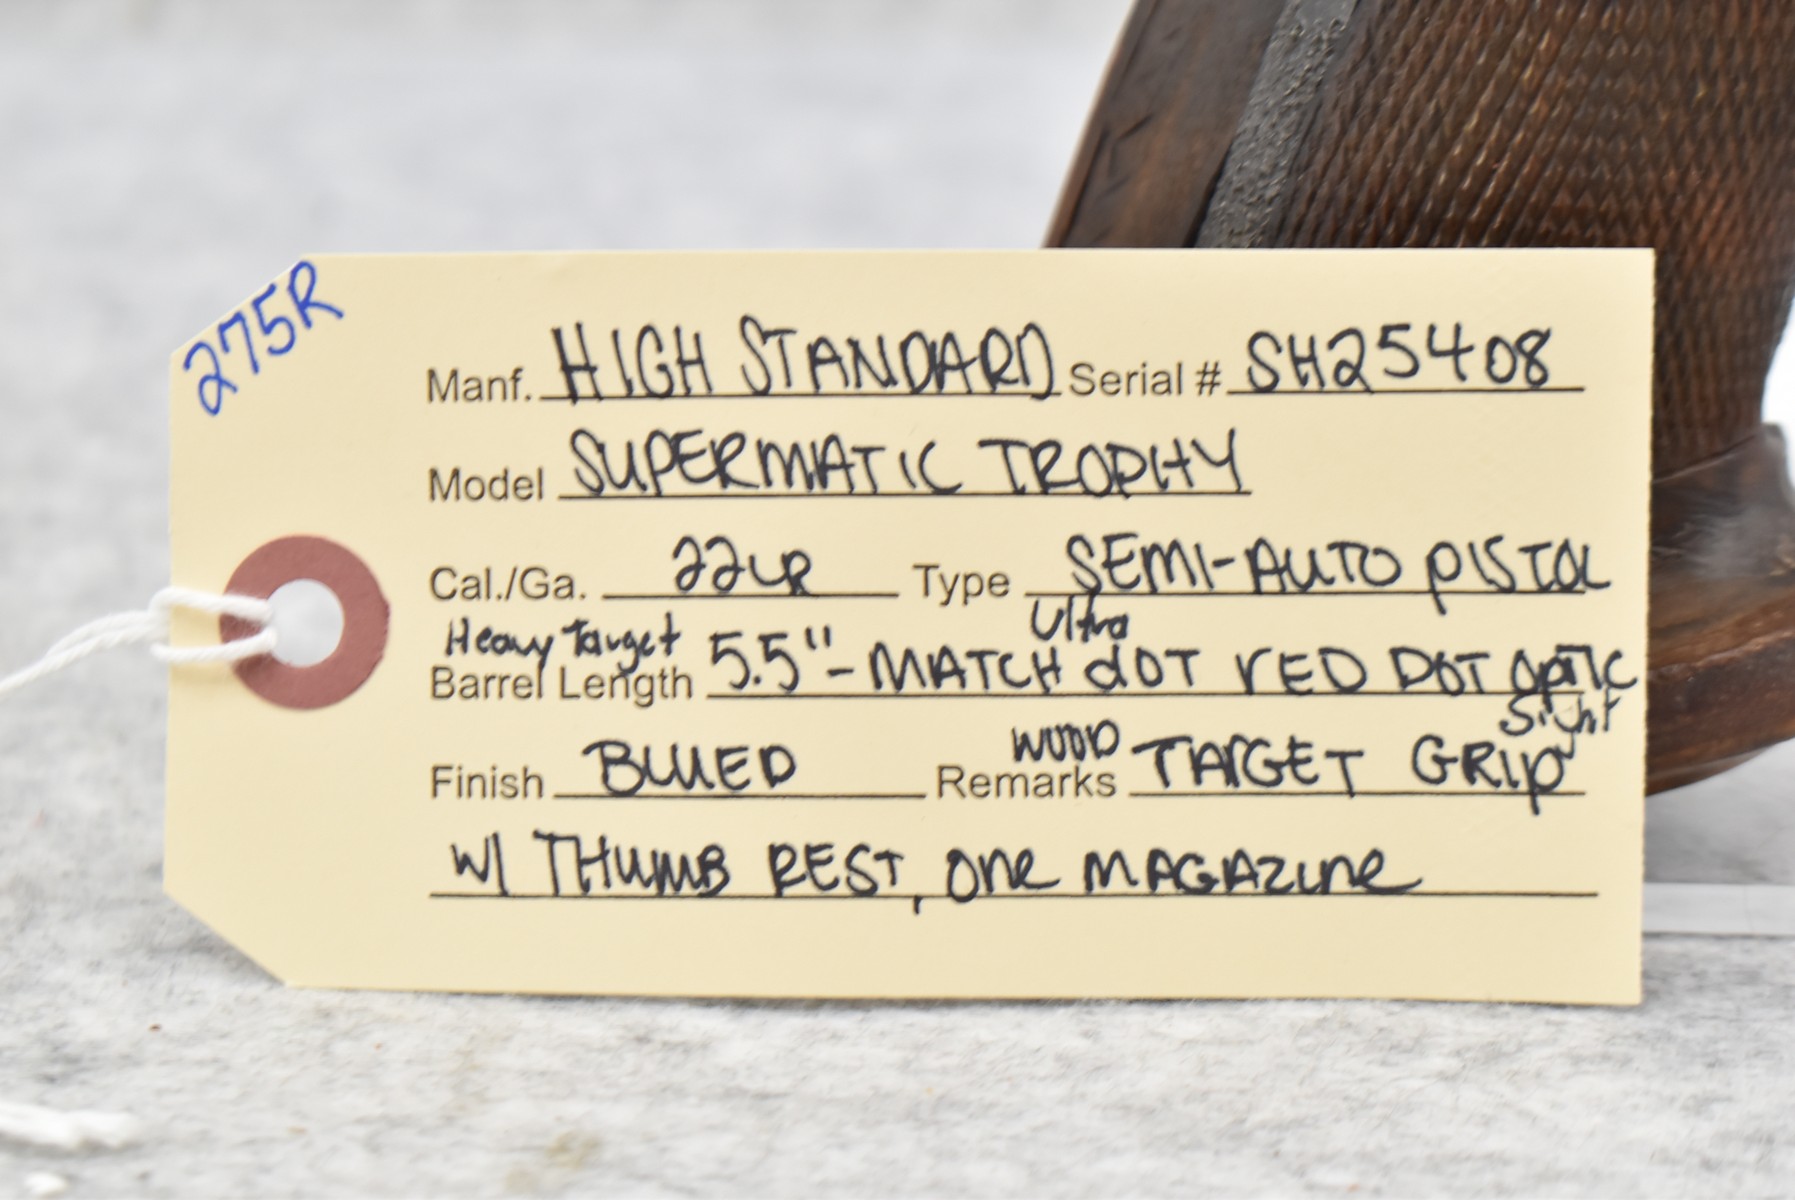 275R
Manf. HIGH STANDARD Serial # SH25408
Model SUPERMATIC TROPHY
Cal./Ga. 22LR Type SEMI-AUTO PISTOL
Heavy Target Ultra
Barrel Length 5.5"-MATCH dOT rED DOT OPTIC
Sight
WOOD
Finish BLUED Remarks TARGET GRIP
W/ THUMB REST, One MAGAZine